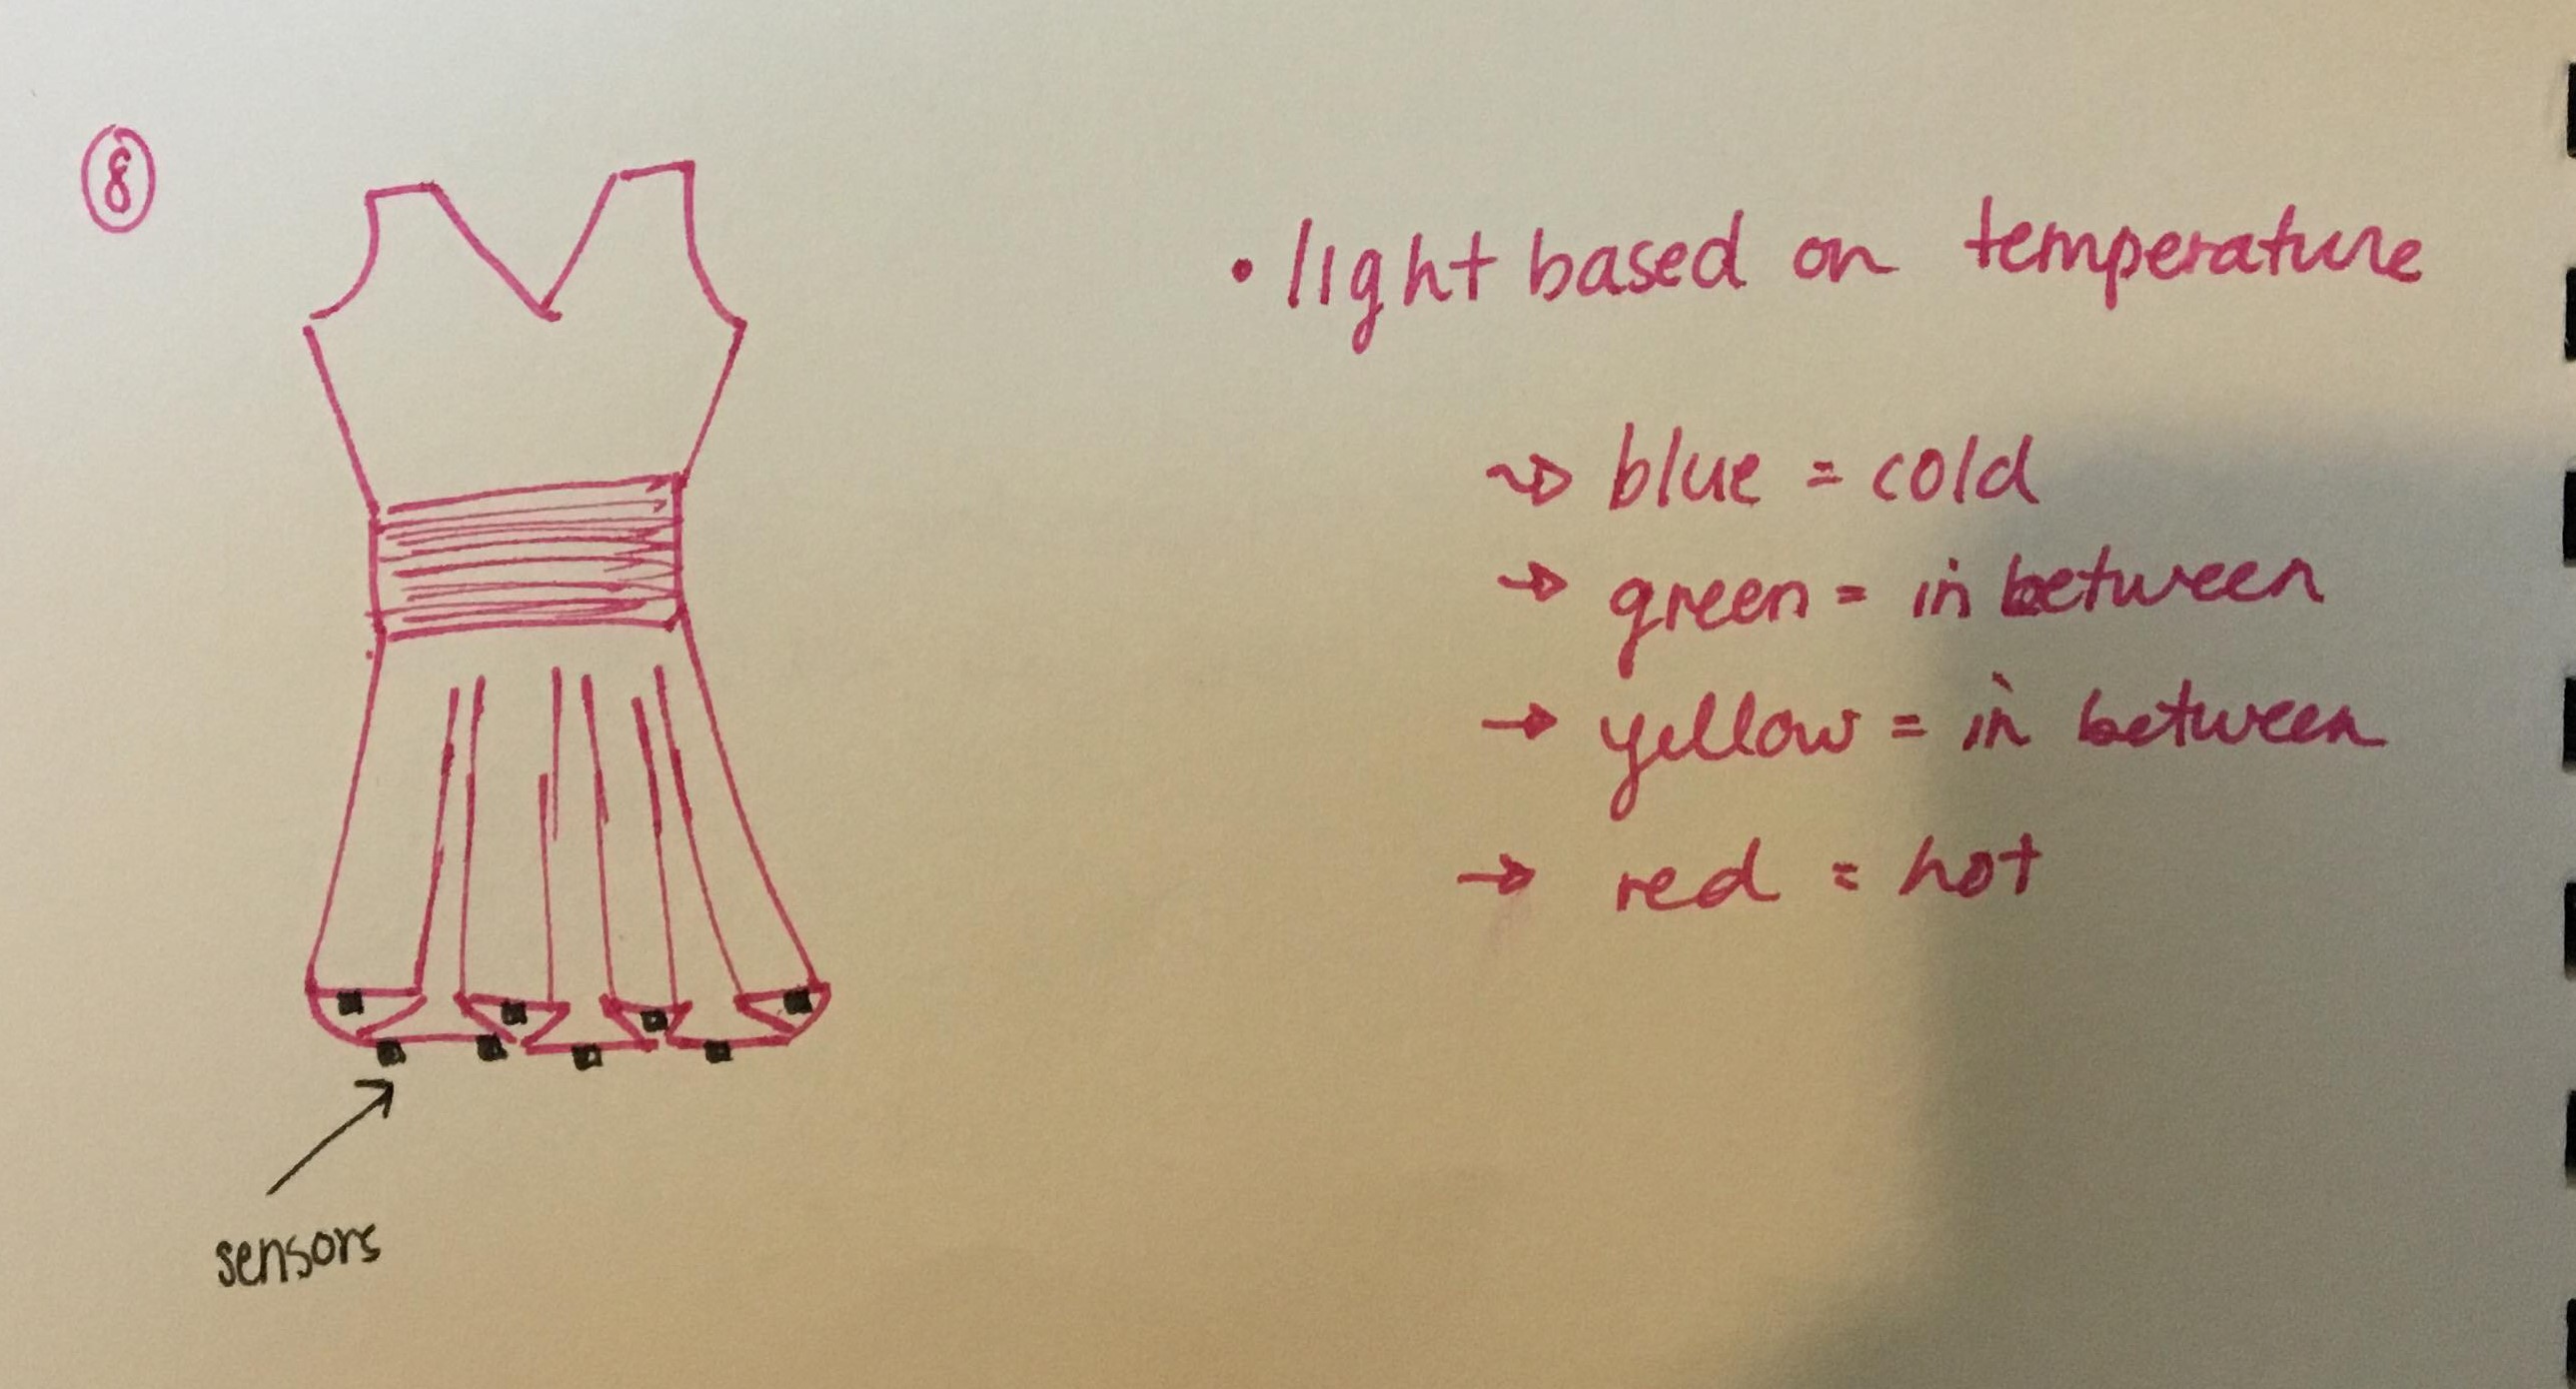 8
• light based on temperature
→ blue = cold
→ green = in between
→ yellow = in between
→ red = hot
sensors